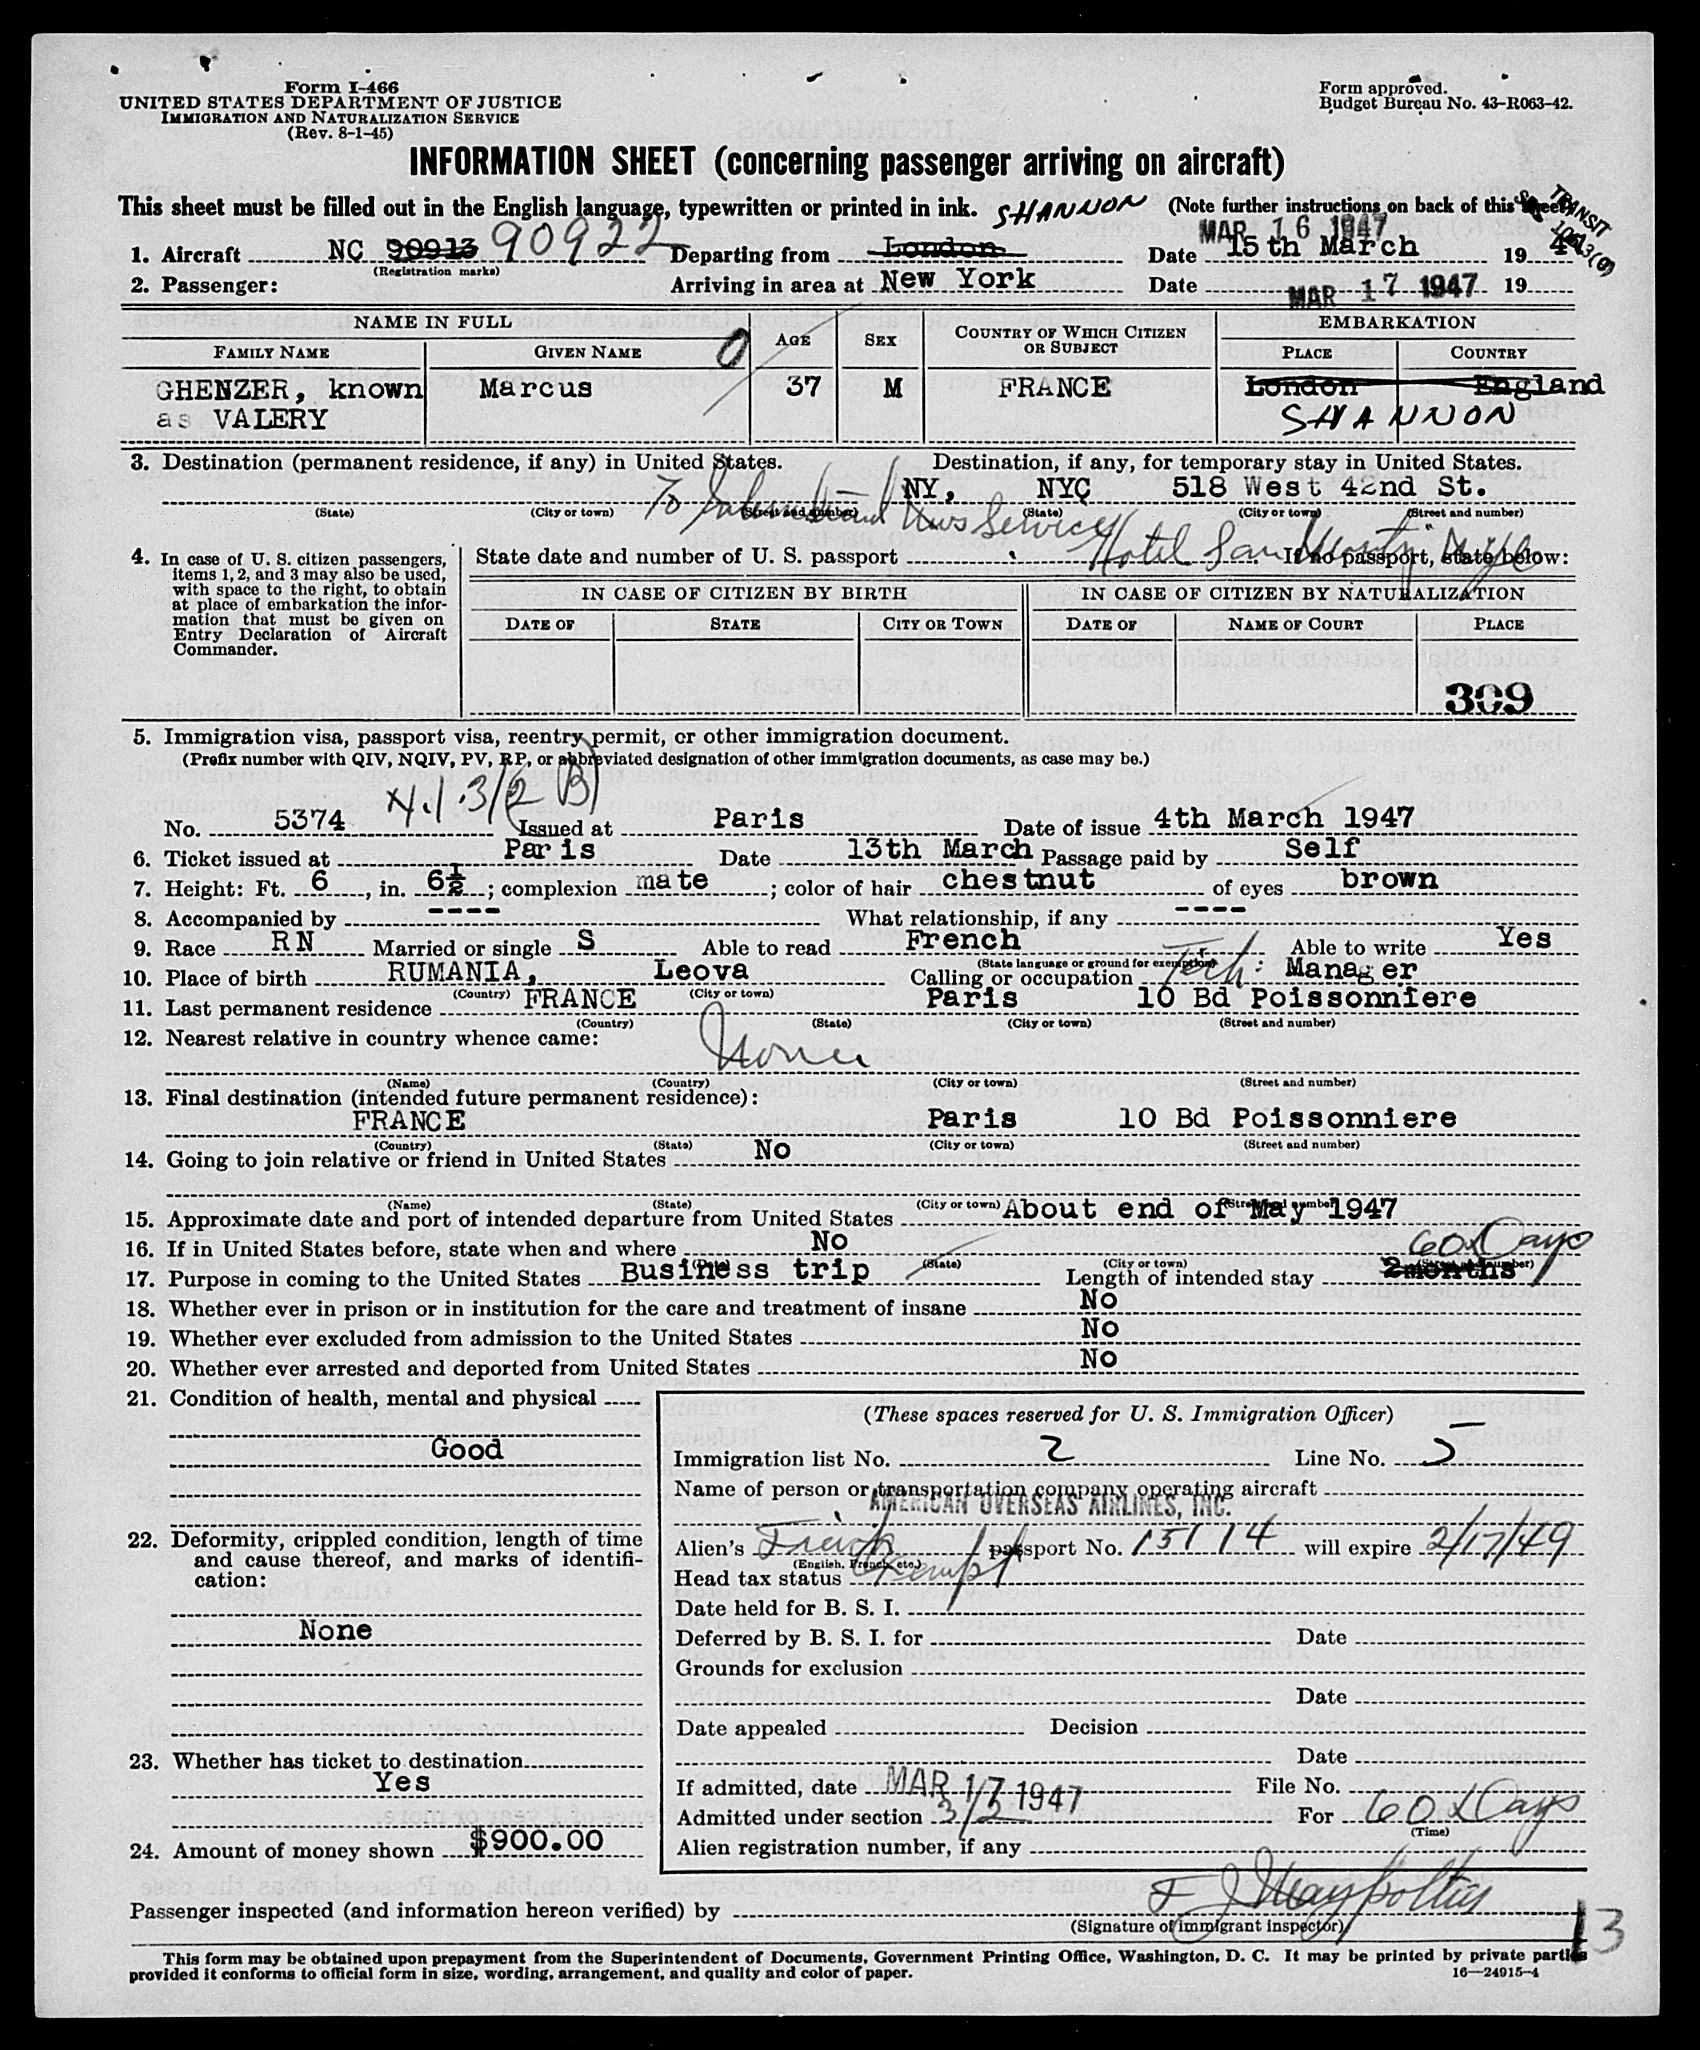 Form I-466
UNITED STATES DEPARTMENT OF JUSTICE
IMMIGRATION AND NATURALIZATION SERVICE
(Rev. 8-1-45)
Form approved.
Budget Bureau No. 43-R063-42.
INFORMATION SHEET (concerning passenger arriving on aircraft)
This sheet must be filled out in the English language, typewritten or printed in ink. SHANNON (Note further instructions on back of this sheet)
TRANSIT
MAR 16 1947
1. Aircraft NC 90913 90922 Departing from London Date 15th March 19 4
(Registration marks)
2. Passenger: Arriving in area at New York Date MAR 17 1947 19
NAME IN FULL AGE SEX COUNTRY OF WHICH CITIZEN OR SUBJECT EMBARKATION
FAMILY NAME GIVEN NAME PLACE COUNTRY
GHENZER, known Marcus 37 M FRANCE London England
as VALERY SHANNON
3. Destination (permanent residence, if any) in United States. Destination, if any, for temporary stay in United States.
NY, NYC 518 West 42nd St.
(State) (City or town) (Street and number) (State) (City or town) (Street and number)
To International News Service
Hotel San
4. In case of U. S. citizen passengers, items 1, 2, and 3 may also be used, with space to the right, to obtain at place of embarkation the information that must be given on Entry Declaration of Aircraft Commander.
State date and number of U. S. passport If no passport, state below:
IN CASE OF CITIZEN BY BIRTH IN CASE OF CITIZEN BY NATURALIZATION
DATE OF STATE CITY OR TOWN DATE OF NAME OF COURT PLACE
309
5. Immigration visa, passport visa, reentry permit, or other immigration document.
(Prefix number with QIV, NQIV, PV, RP, or abbreviated designation of other immigration documents, as case may be.)
3/2 (B)
No. 5374 Issued at Paris Date of issue 4th March 1947
6. Ticket issued at Paris Date 13th March Passage paid by Self
7. Height: Ft. 6, in. 6½; complexion mate; color of hair chestnut of eyes brown
8. Accompanied by ---- What relationship, if any ----
9. Race RN Married or single S Able to read French Able to write Yes
(State language or ground for exemption)
10. Place of birth RUMANIA, Leova Calling or occupation Tech: Manager
(Country) (City or town)
11. Last permanent residence FRANCE Paris 10 Bd Poissonniere
(Country) (State) (City or town) (Street and number)
12. Nearest relative in country whence came:
None
(Name) (Country) (City or town) (Street and number)
13. Final destination (intended future permanent residence):
FRANCE Paris 10 Bd Poissonniere
(Country) (State) (City or town) (Street and number)
14. Going to join relative or friend in United States No
(Name) (State) (City or town) (Street and number)
15. Approximate date and port of intended departure from United States About end of May 1947
16. If in United States before, state when and where No
60 Days
(State) (City or town)
17. Purpose in coming to the United States Business trip Length of intended stay 2months
18. Whether ever in prison or in institution for the care and treatment of insane No
19. Whether ever excluded from admission to the United States No
20. Whether ever arrested and deported from United States No
21. Condition of health, mental and physical
Good
22. Deformity, crippled condition, length of time and cause thereof, and marks of identification:
None
23. Whether has ticket to destination
Yes
24. Amount of money shown $900.00
(These spaces reserved for U. S. Immigration Officer)
Immigration list No. 2 Line No. 5
Name of person or transportation company operating aircraft
AMERICAN OVERSEAS AIRLINES, INC.
Alien's French passport No. 15114 will expire 2/17/49
(English, French, etc.)
Head tax status Exempt
Date held for B. S. I.
Deferred by B. S. I. for Date
Grounds for exclusion
Date
Date appealed Decision
Date
If admitted, date MAR 17 1947 File No.
Admitted under section 3/2 For 60 Days
(Time)
Alien registration number, if any
Passenger inspected (and information hereon verified) by
(Signature of immigrant inspector)
13
This form may be obtained upon prepayment from the Superintendent of Documents, Government Printing Office, Washington, D. C. It may be printed by private parties
provided it conforms to official form in size, wording, arrangement, and quality and color of paper.
16—24915-4